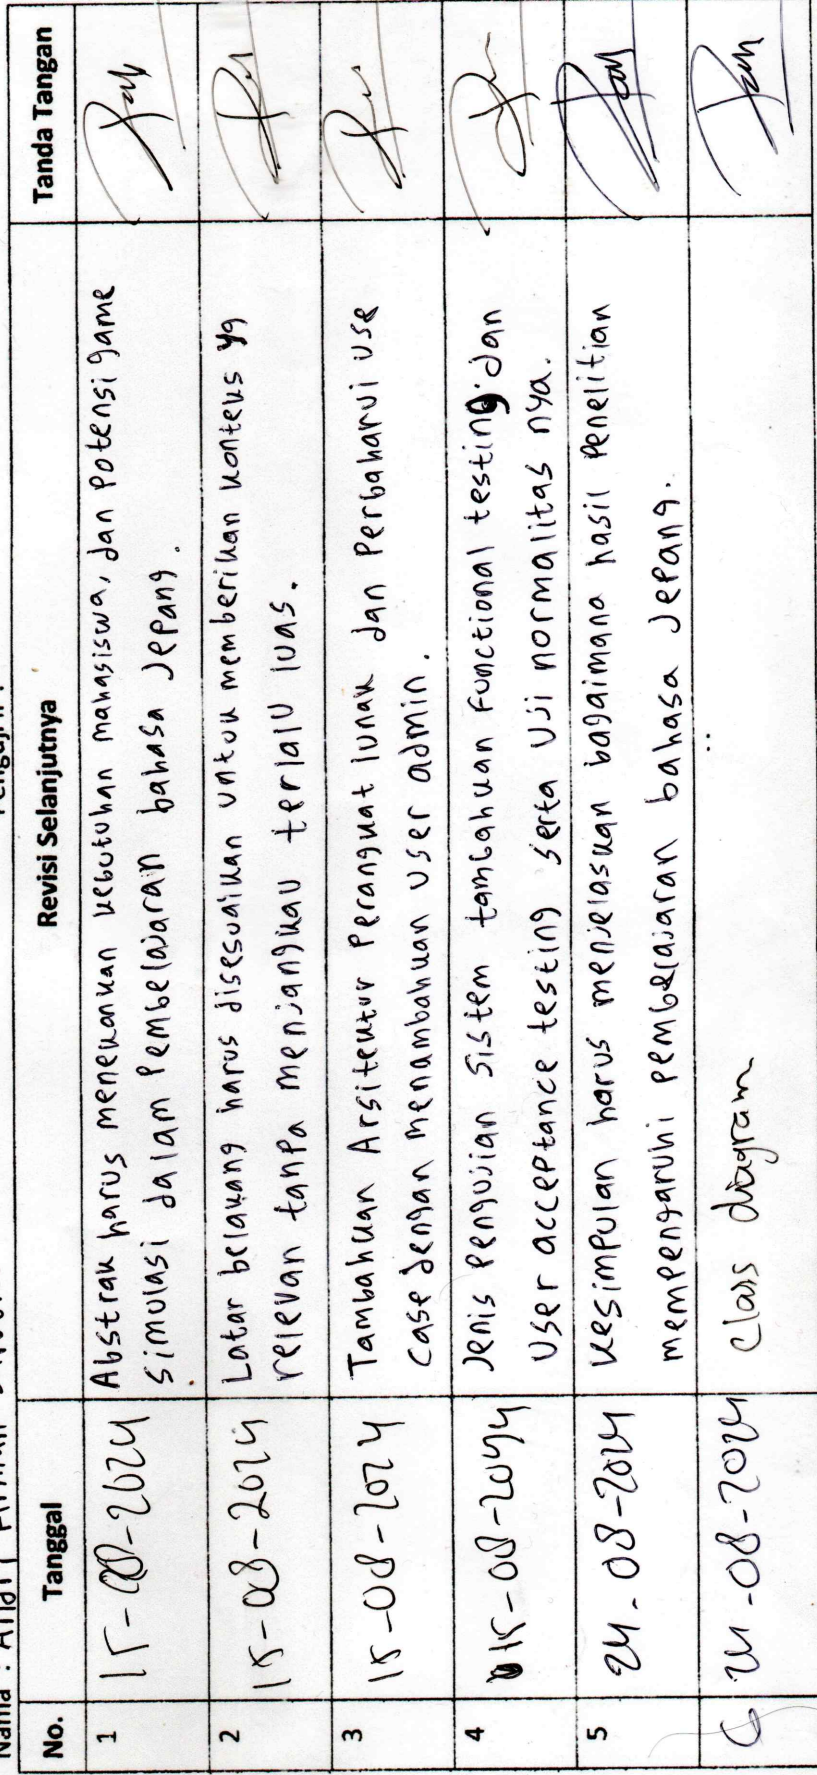 Nama :
No. Tanggal Revisi Selanjutnya Tanda Tangan
1 15-08-2024 Abstrak harus menekankan kebutuhan mahasiswa, dan potensi game
simulasi dalam pembelajaran bahasa Jepang.
2 15-08-2024 Latar belakang harus disesuaikan untuk memberikan konteks yg
relevan tanpa menjangkau terlalu luas.
3 15-08-2024 Tambahkan Arsitektur Perangkat lunak dan Perbaharui use
case dengan menambahkan user admin.
4 15-08-2024 Jenis Pengujian Sistem tambahkan Functional testing dan
User acceptance testing serta Uji normalitas nya.
5 24-08-2024 Kesimpulan harus menjelaskan bagaimana hasil Penelitian
mempengaruhi pembelajaran bahasa Jepang.
6 24-08-2024 class diagram